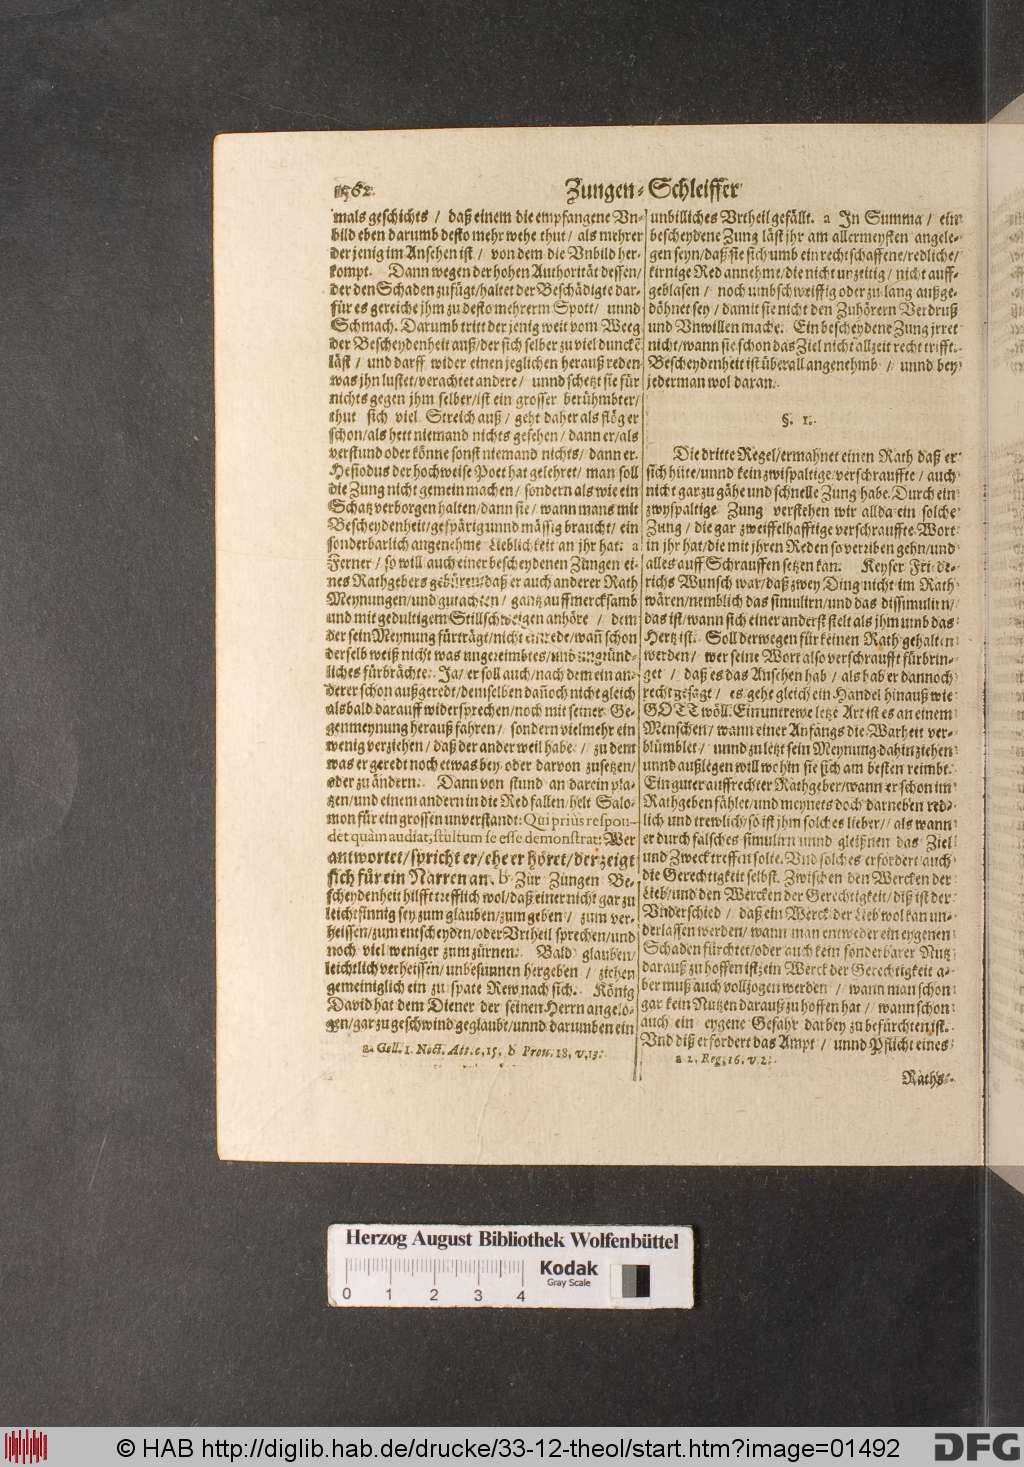 Zungen-Schleiffer
mals geschichts / daß einem die empfangene Vn-
bild eben darumb desto mehr wehe thut / als mehrer
der jenig im Ansehen ist / von dem die Vnbild her-
kompt. Dann wegen der hohen Authoritåt dessen /
der den Schaden zufügt / haltet der Beschådigte dar-
für es gereiche jhm zu desto mehrerm Spott / unnd
Schmach. Darumb tritt der jenig weit vom Weeg
der Bescheydenheit auß / der sich selber zu viel dunckẽ
låst / und darff wider einen jeglichen herauß reden
was jhn lustet / verachtet andere / unnd schetzt sie für
nichts gegen jhm selber / ist ein grosser berühmbter /
thut sich viel Streich auß / geht daher als flög er
schon / als hett niemand nichts gesehen / dann er / als
verstund oder könne sonst niemand nichts / dann er.
Hesiodus der hochweise Poet hat gelehret / man soll
die Zung nicht gemein machen / sondern als wie ein
Schatz verborgen halten / dann sie / wann mans mit
Bescheydenheit / gespårig unnd måssig braucht / ein
sonderbarlich angenehme Lieblichkeit an jhr hat. a
Ferner / so will auch einer bescheydenen Zungen ei-
nes Rathgebers gebüren / daß er auch anderer Rath
Meynungen / und gutachten / gantz auffmercksamb
und mit gedultigem Stillschweigen anhöre / dem
der sein Meynung fürtrågt / nicht einrede / wañ schon
derselb weiß nicht was ungereimbtes / und ungründ-
liches fürbråchte. Ja / er soll auch / nach dem ein an-
derer schon außgeredt / demselben dañoch nicht gleich
alsbald darauff widersprechen / noch mit seiner Ge-
genmeynung herauß fahren / sondern vielmehr ein
wenig verziehen / daß der ander weil habe / zu dem
was er geredt noch etwas bey oder darvon zusetzen /
oder zu åndern. Dann von stund an darein pla-
tzen / und einem andern in die Red fallen / helt Salo-
mon für ein grossen unverstandt: Qui priùs respon-
det quàm audiat, stultum se esse demonstrat: Wer
antwortet / spricht er / ehe er höret / der zeigt
sich für ein Narren an. b Zur Zungen Be-
scheydenheit hilfft trefflich wol / daß einer nicht gar zu
leichtsinnig sey zum glauben / zum geben / zum ver-
heissen / zum entscheyden / oder Vrtheil sprechen / und
noch viel weniger zum zürnen. Bald glauben /
leichtlich verheissen / unbesunnen hergeben / ziehen
gemeiniglich ein zu spate Rew nach sich. König
David hat dem Diener der seinen Herrn angelo-
gen / gar zu geschwind geglaubt / unnd darumben ein
a. Gell. 1. Noct. Att. c. 15. b Prou. 18. v. 13.
unbilliches Vrtheil gefållt. a In Summa / ein
bescheydene Zung låst jhr am allermeysten angele-
gen seyn / daß sie sich umb ein rechtschaffene / redliche /
kirnige Red annehme / die nicht unzeitig / nicht auff-
geblasen / noch umbschweiffig oder zu lang außge-
döhnet sey / damit sie nicht den Zuhörern Verdruß
und Vnwillen mache. Ein bescheydene Zung jrret
nicht / wann sie schon das Ziel nicht allzeit recht trifft.
Bescheydenheit ist überall angenehmb / unnd bey
jederman wol daran.
§. 1.
Die dritte Regel / ermahnet einen Rath daß er
sich hüte / unnd kein zwispaltige / verschrauffte / auch
nicht gar zu gåhe und schnelle Zung habe. Durch ein
zwyspaltige Zung verstehen wir allda ein solche
Zung / die gar zweiffelhafftige verschrauffte Wort
in jhr hat / die mit jhren Reden so vertiben gehn / und
alles auff Schrauffen setzen kan. Keyser Fride-
richs Wunsch war / daß zwey Ding nicht im Rath
wåren / nemblich das simulirn / und das dissimulirn /
das ist / wann sich einer anderst stelt als jhm umb das
Hertz ist. Soll derwegen für keinen Rath gehalten
werden / wer seine Wort also verschraufft fürbrin-
get / daß es das Ansehen hab / als hab er dannoch
recht gesagt / es gehe gleich ein Handel hinauß wie
GOTT wöll. Ein untrewe letze Art ist es an einem
Menschen / wann einer Anfangs die Warheit ver-
blümblet / unnd zu letzt sein Meynung dahin ziehen
unnd außlegen will wohin sie sich am besten reimbt.
Ein guter auffrechter Rathgeber / wann er schon im
Rathgeben fåhlet / und meynets doch darneben red-
lich und trewlich / so ist jhm solches lieber / als wann
er durch falsches simulirn unnd gleißnen das Ziel
und Zweck treffen solte. Vnd solches erfordert auch
die Gerechtigkeit selbst. Zwischen den Wercken der
Lieb / und den Wercken der Gerechtigkeit / diß ist der
Vnderschied / daß ein Werck der Lieb wol kan un-
derlassen werden / wann man entweder ein eygenen
Schaden fürchtet / oder auch kein sonderbarer Nutz
darauß zu hoffen ist: ein Werck der Gerechtigkeit a-
ber muß auch vollzogen werden / wann man schon
gar kein Nutzen darauß zu hoffen hat / wann schon
auch ein eygene Gefahr darbey zu befürchten ist.
Vnd diß erfordert das Ampt / unnd Pflicht eines
a 2. Reg. 16. v. 2.
Raths-
Herzog August Bibliothek Wolfenbüttel
Kodak
Gray Scale
0 1 2 3 4
© HAB http://diglib.hab.de/drucke/33-12-theol/start.htm?image=01492
DFG